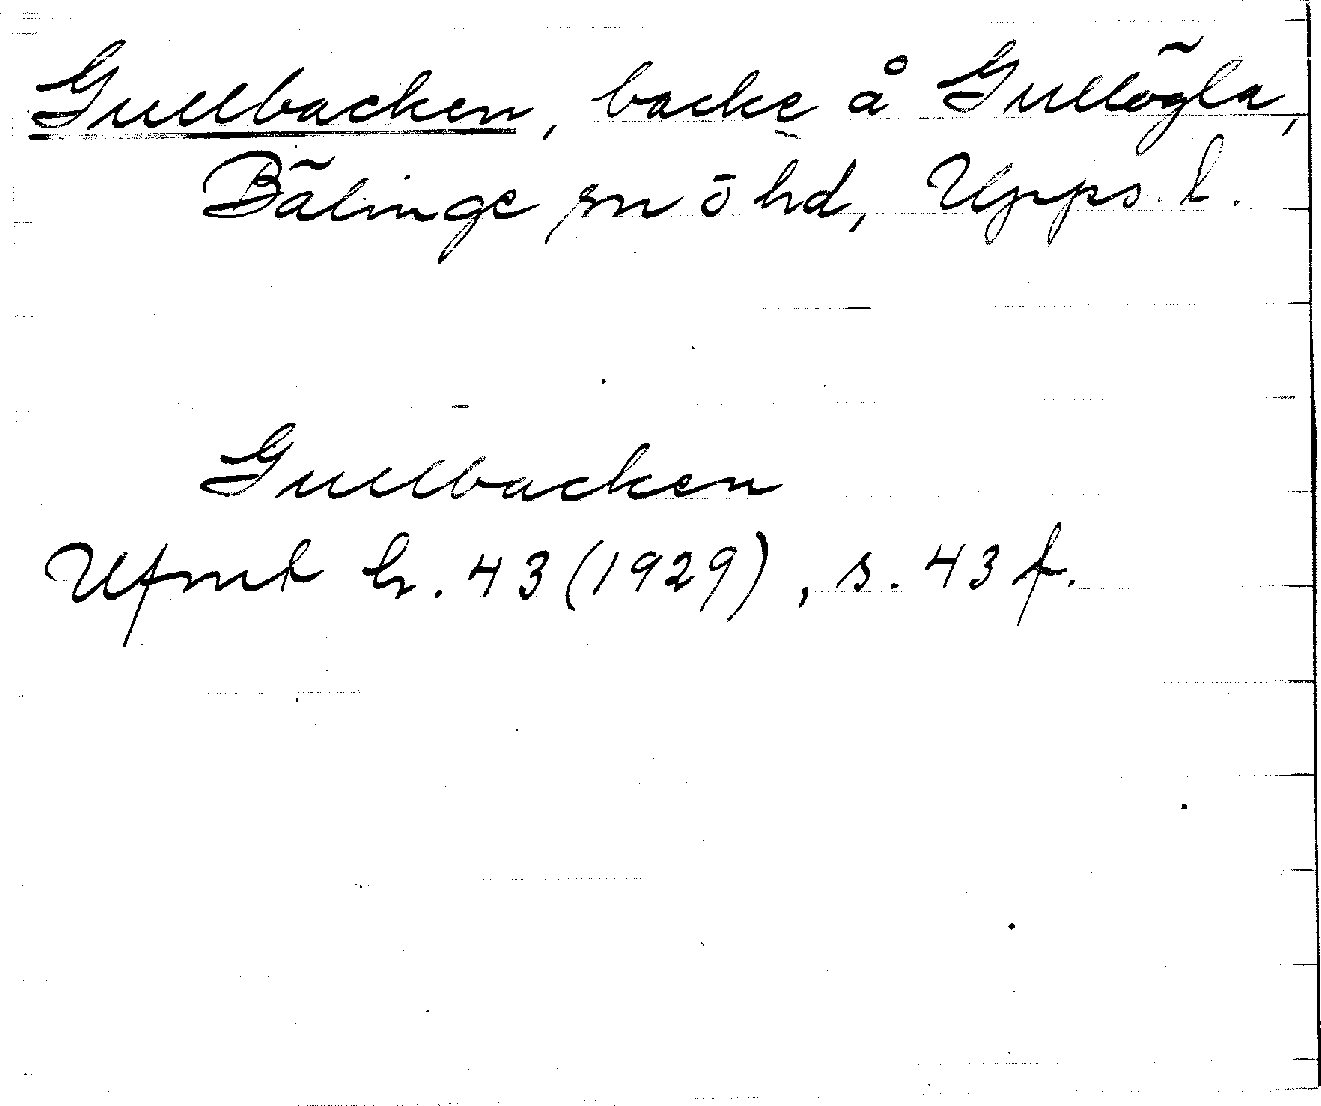 Gullbacken, backe å Gullögla,
Bälinge sn ö hd, Upps. l.
Gullbacken
Ufmt h. 43 (1929), s. 43 f.